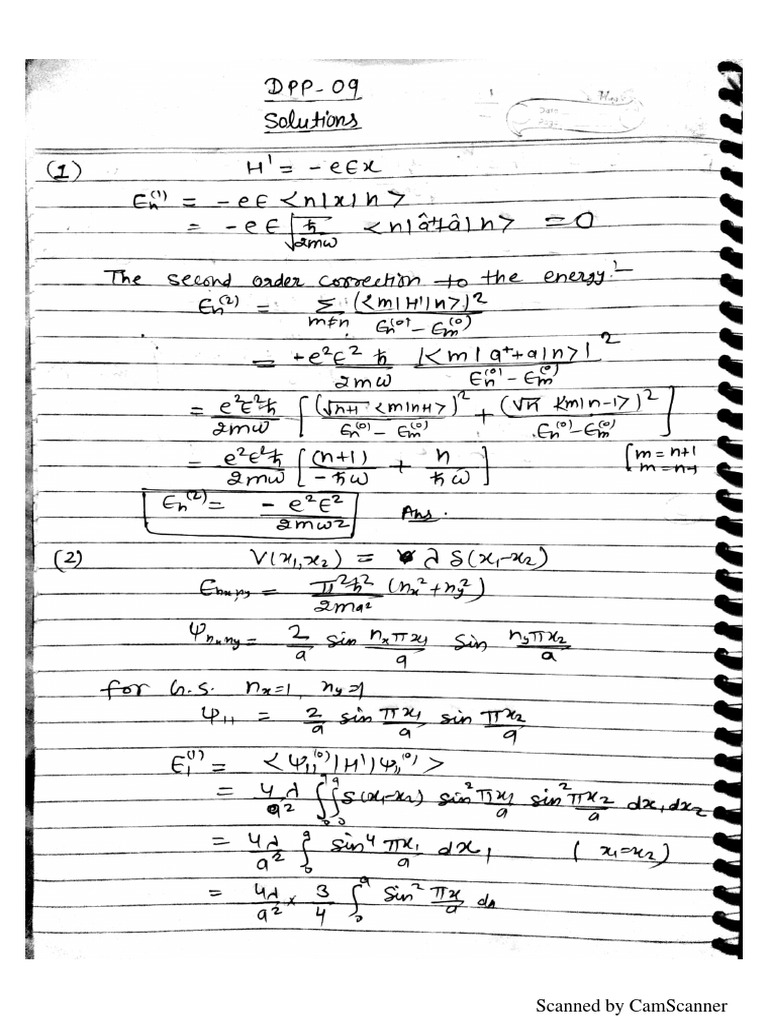 DPP-09
Solutions
(1) H' = -eEx
En^(1) = -eE <n|x|n>
= -eE √(ħ/2mω) <n|â⁺+â|n> = 0
The second order correction to the energy:-
En^(2) = Σ_{m≠n} (<m|H'|n>)² / (En^(0) - Em^(0))
= +e²E²ħ/2mω |<m|a⁺+a|n>|² / (En^(0) - Em^(0))
= e²E²ħ/2mω [ (√n+1 <m|n+1>)² / (En^(0) - Em^(0)) + (√n <m|n-1>)² / (En^(0) - Em^(0)) ]
= e²E²ħ/2mω [ (n+1)/-ħω + n/ħω ] [ m=n+1
m=n-1
En^(2) = -e²E²/2mω² Ans.
(2) V(x₁,x₂) = λ δ(x₁-x₂)
Enx,ny = π²ħ²/2ma² (nx²+ny²)
Ψnxny = 2/a sin nxπx₁/a sin nyπx₂/a
for G.S. nx=1, ny=1
Ψ₁₁ = 2/a sin πx₁/a sin πx₂/a
E₁^(1) = <Ψ₁₁^(0)|H'|Ψ₁₁^(0)>
= 4λ/a² ∫₀^a∫₀^a δ(x₁-x₂) sin² πx₁/a sin² πx₂/a dx₁dx₂
= 4λ/a² ∫₀^a sin⁴ πx₁/a dx₁ ( x₁=x₂)
= 4λ/a² × 3/4 ∫₀^a sin² πx/a dx
Scanned by CamScanner